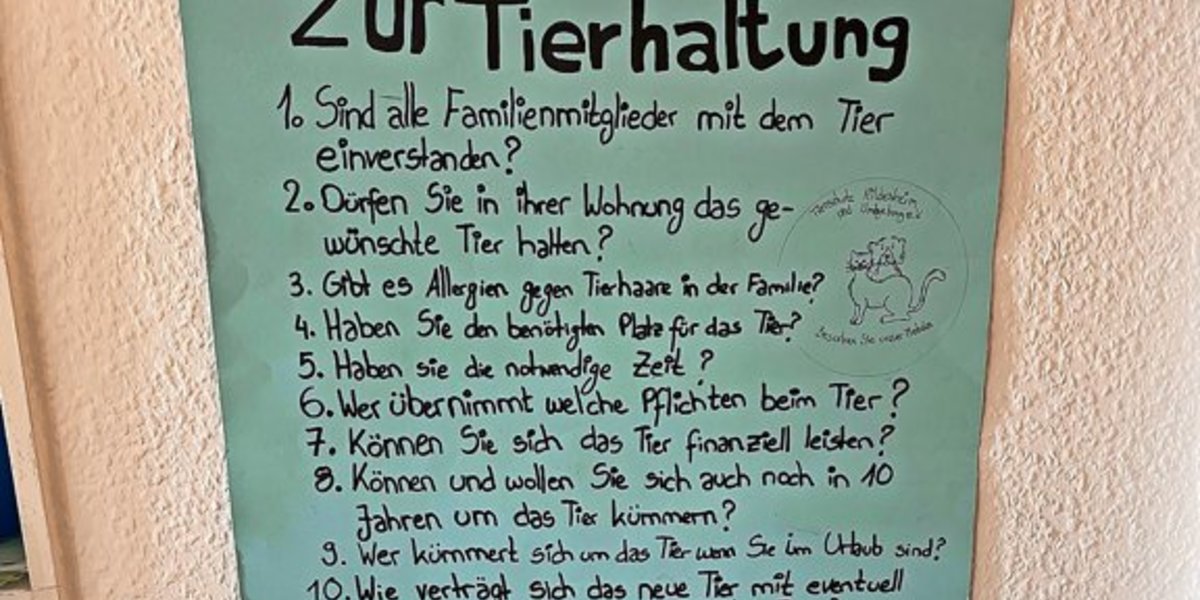 Zur Tierhaltung
1. Sind alle Familienmitglieder mit dem Tier
einverstanden?
2. Dürfen Sie in ihrer Wohnung das ge-
wünschte Tier halten?
3. Gibt es Allergien gegen Tierhaare in der Familie?
4. Haben Sie den benötigten Platz für das Tier?
5. Haben sie die notwendige Zeit?
6. Wer übernimmt welche Pflichten beim Tier?
7. Können Sie sich das Tier finanziell leisten?
8. Können und wollen Sie sich auch noch in 10
Jahren um das Tier kümmern?
9. Wer kümmert sich um das Tier wenn Sie im Urlaub sind?
10. Wie verträgt sich das neue Tier mit eventuell
Tierschutz Hildesheim
und Umgebung e.V.
Sie unser